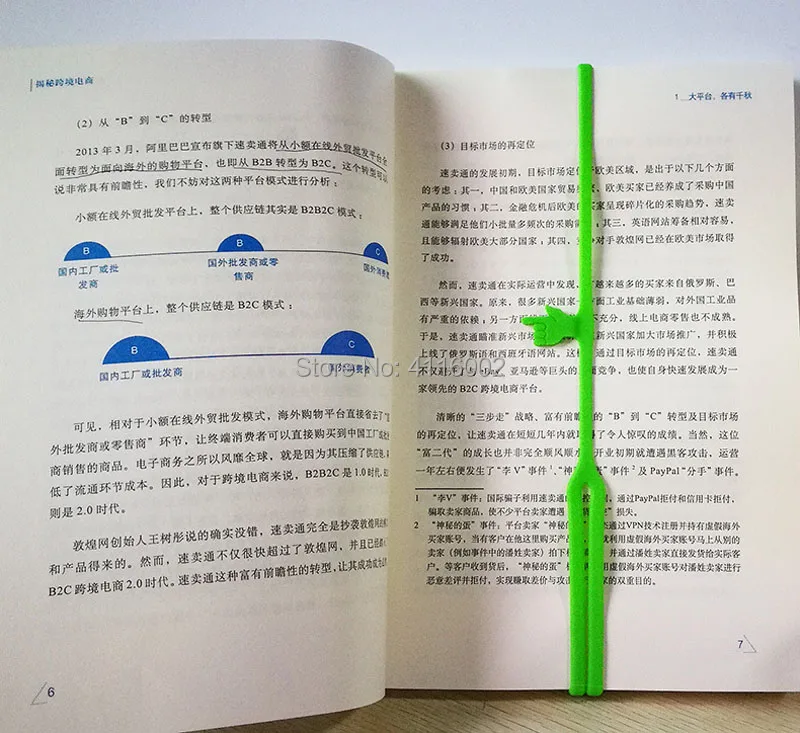 揭秘跨境电商
（2）从“B”到“C”的转型
2013 年 3 月，阿里巴巴宣布旗下速卖通将从小额在线外贸批发平台全
面转型为面向海外的购物平台，也即从 B2B 转型为 B2C。这个转型可以
说非常具有前瞻性，我们不妨对这两种平台模式进行分析：
小额在线外贸批发平台上，整个供应链其实是 B2B2C 模式：
B
B
C
国内工厂或批
发商
国外批发商或零
售商
国外消费
海外购物平台上，整个供应链是 B2C 模式：
B
C
国内工厂或批发商
国外消费
可见，相对于小额在线外贸批发模式，海外购物平台直接省去了“国
外批发商或零售商”环节，让终端消费者可以直接购买到中国工厂或批
商销售的商品。电子商务之所以风靡全球，就是因为其压缩了供应
低了流通环节成本。因此，对于跨境电商来说，B2B2C 是 1.0 时代，
则是 2.0 时代。
敦煌网创始人王树彤说的确实没错，速卖通完全是抄袭敦煌网的
和产品得来的。然而，速卖通不仅很快超过了敦煌网，并且已经
B2C 跨境电商 2.0 时代。速卖通这种富有前瞻性的转型，让其成功成为
6
1__大平台，各有千秋
（3）目标市场的再定位
速卖通的发展初期，目标市场定 欧美区域，是出于以下几个方面
的考虑：其一，中国和欧美国家贸易 ，欧美买家已经养成了采购中国
产品的习惯；其二，金融危机后欧美 家呈现碎片化的采购趋势，速卖
通能够满足他们小批量多频次的采购 ；其三，英语网站筹备相对容易，
且能够辐射欧美大部分国家；其四， 对手敦煌网已经在欧美市场取得
了成功。
然而，速卖通在实际运营中发现， 越来越多的买家来自俄罗斯、巴
西等新兴国家。原来，很多新兴国家 面工业基础薄弱，对外国工业品
有严重的依赖；另一方 不充分，线上电商零售也不成熟。
于是，速卖通瞄准新兴市 新兴国家加大市场推广，并积极
上线了俄罗斯语和西班牙语网站。这 通过目标市场的再定位，速卖通
不仅避 、亚马逊等巨头的 面竞争，也使自身快速发展成为一
家领先的 B2C 跨境电商平台。
清晰的“三步走”战略、富有前瞻 的“B”到“C”转型及目标市场
的再定位，让速卖通在短短几年内就 得了令人惊叹的成绩。当然，这位
“富二代”的成长也并非完全顺风顺水 开业初期就遭遇黑客攻击，运营
一年左右便发生了“李 V”事件1、“神 蛋”事件2 及 PayPal“分手”事件。
1 “李V”事件：国际骗子利用速卖通 ，通过PayPal拒付和信用卡拒付，
骗取卖家商品，使不少平台卖家遭遇 损失。
2 “神秘的蛋”事件：平台卖家“神秘的 通过VPN技术注册并持有虚假海外
买家账号，当有客户在他这里购买产品 利用虚假海外买家账号马上从别的
卖家（例如事件中的潘姓卖家）拍下 并通过潘姓卖家直接发货给实际客
户。等客户收到货后，“神秘的蛋” 用虚假海外买家账号对潘姓卖家进行
恶意差评并拒付，实现赚取差价与攻击 家的双重目的。
7
Store No: 4116002